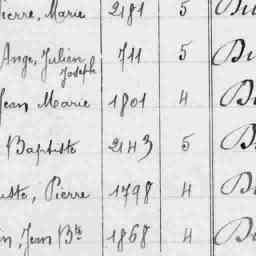 Pierre, Marie 2181 5
Ange, Julien, Joseph 711 5
Jean Marie 1801 4
Baptiste 2143 5
Pierre 1798 4
Jean Bte 1868 4